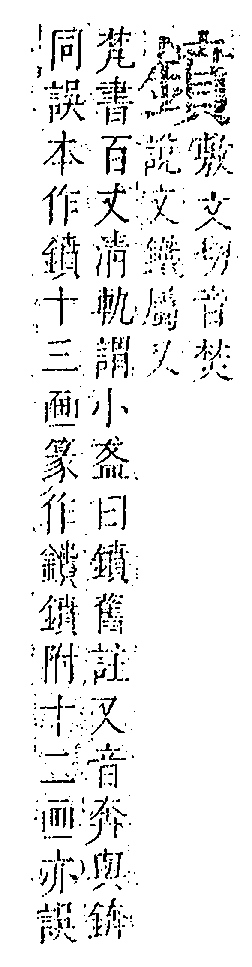 鐼
敷文切音焚
說文鐵屬又
梵書百丈清軌謂小盆曰鐼舊註又音奔與錛
同誤本作鐼十三画篆作鐼鐼附十二画亦誤